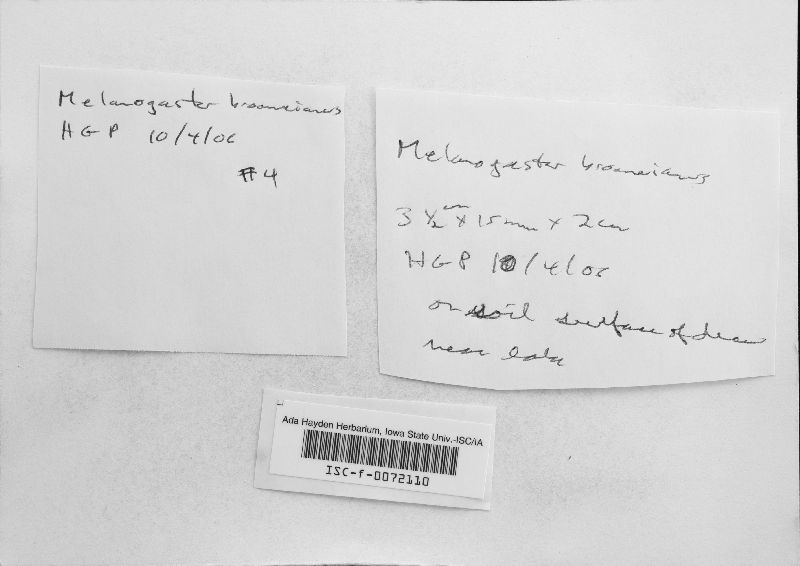 Melanogaster broomeianus
HGP 10/4/06
#4
Melanogaster broomeianus
3 1/2 cm x 15 mm x 2 cm
HGP 10/4/06
on soil surface of
near
Ada Hayden Herbarium, Iowa State Univ.-ISC/IA
ISC-f-0072110